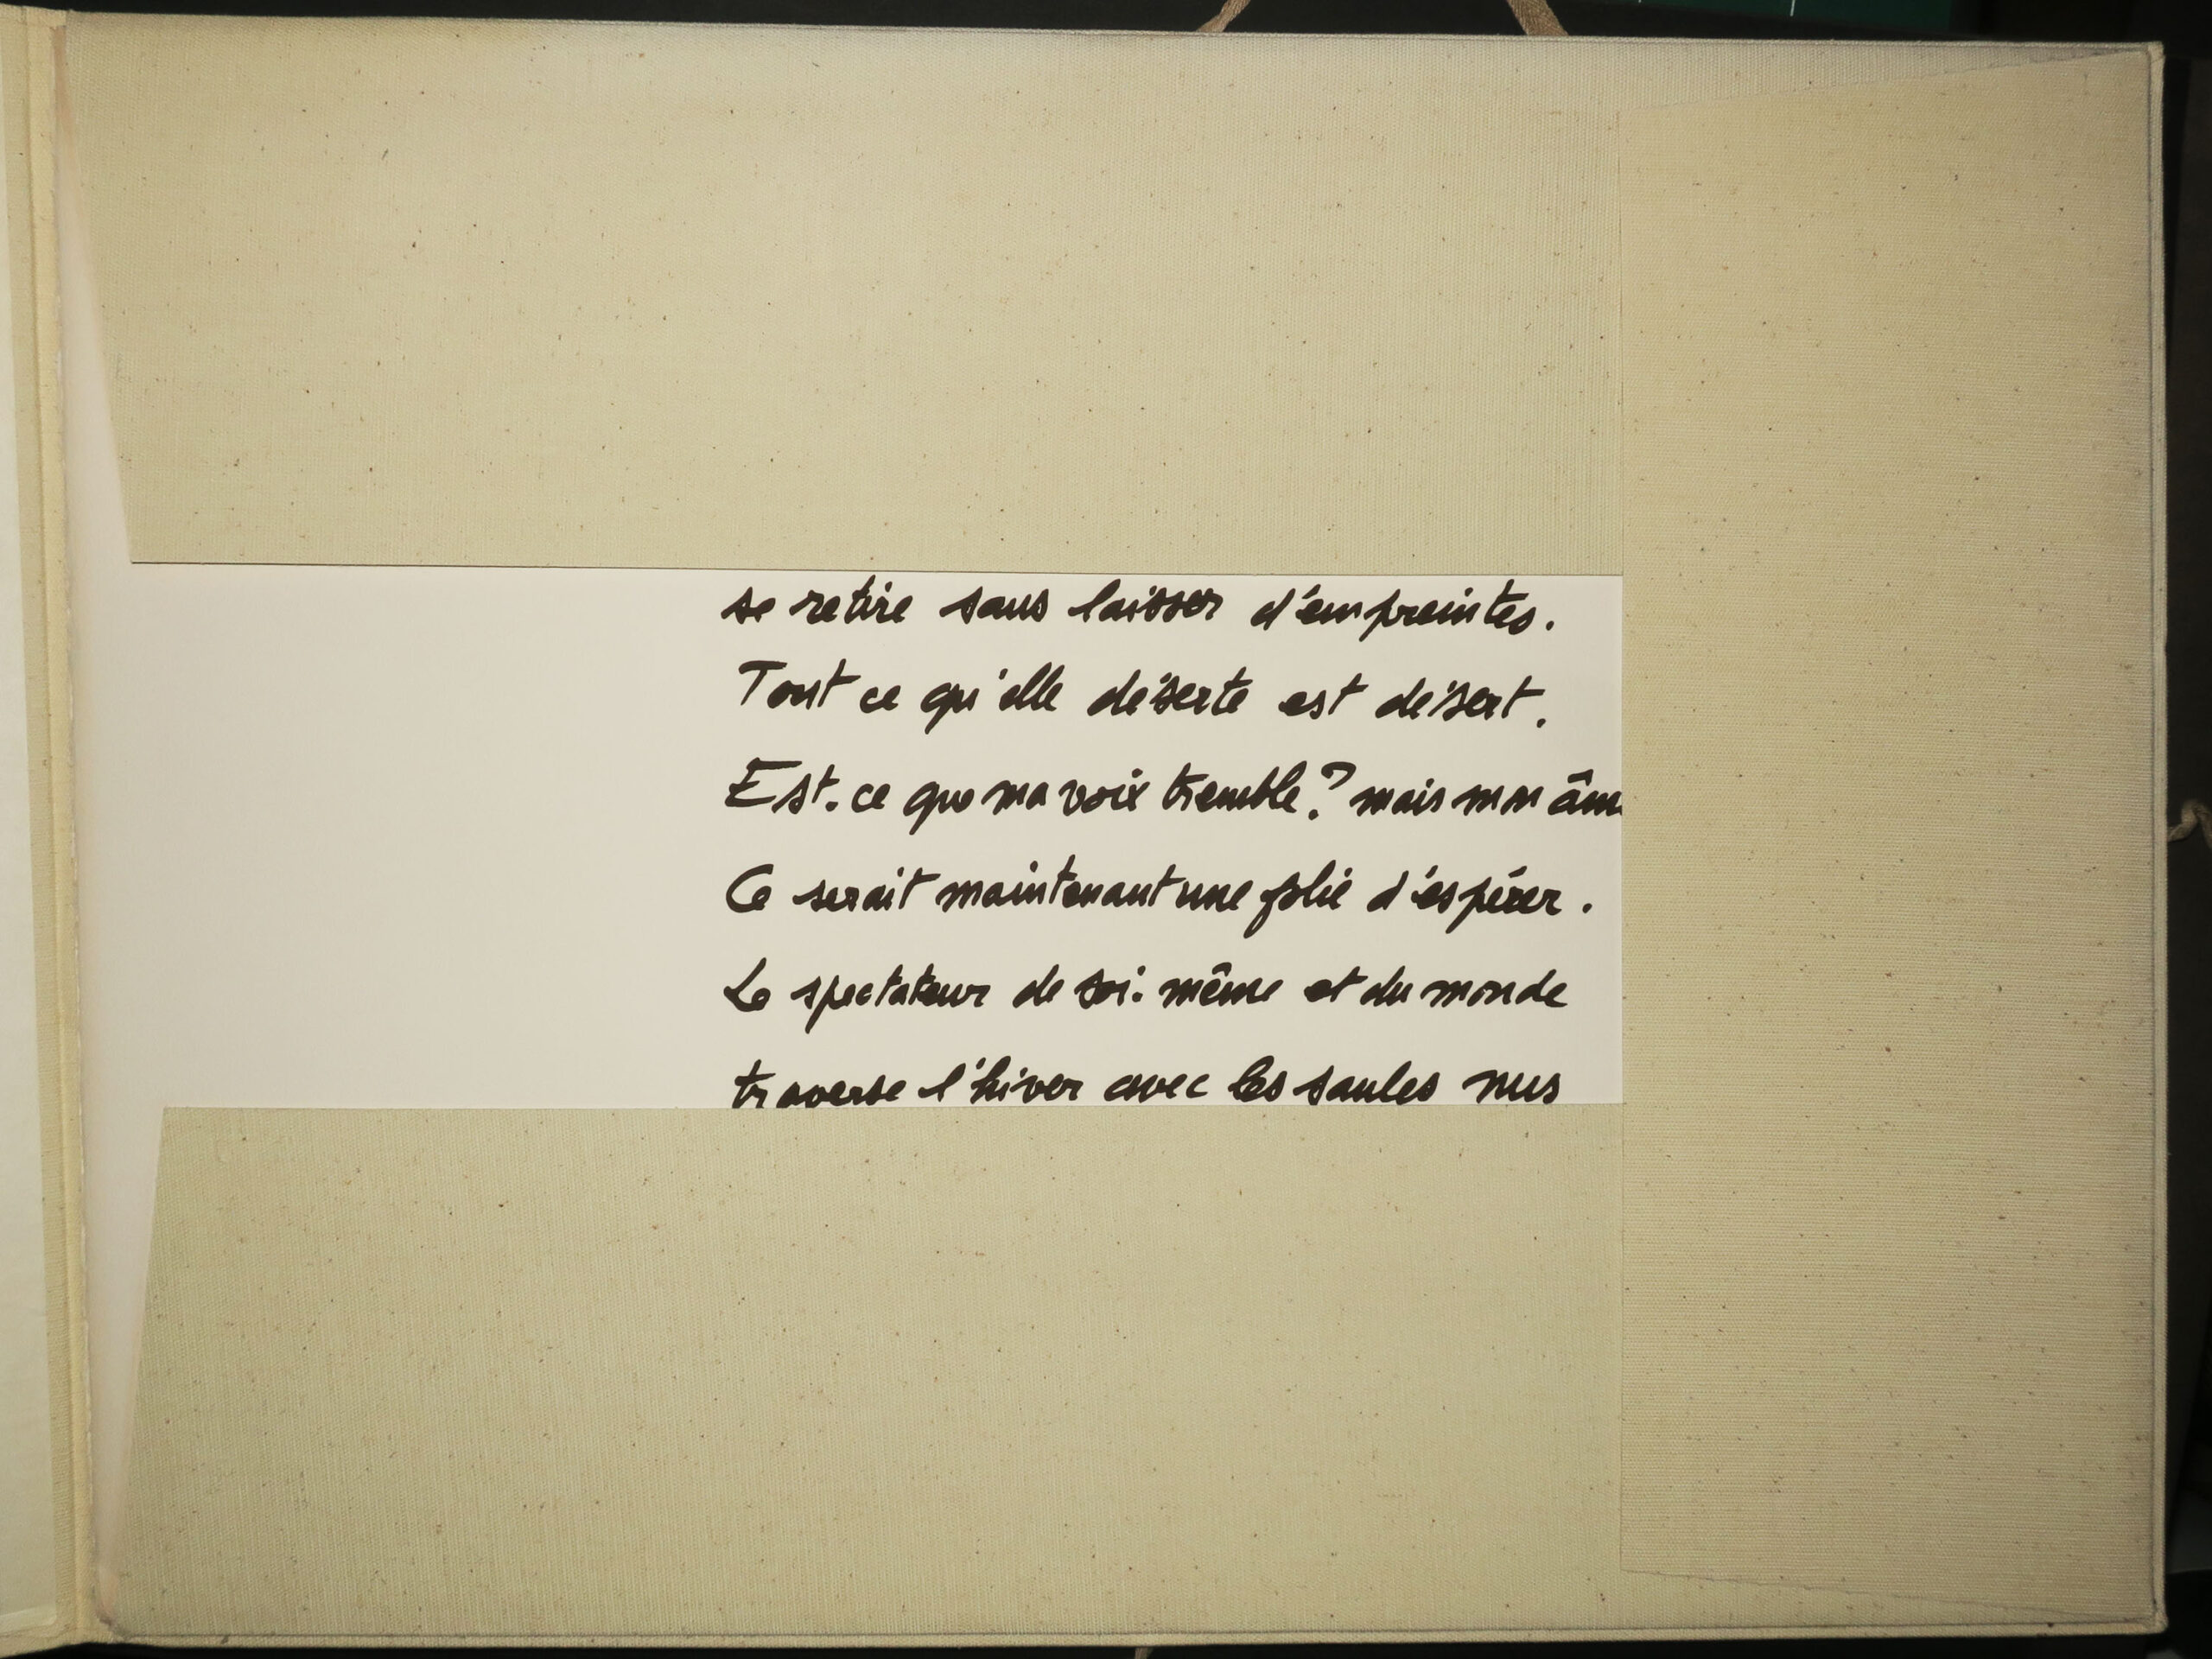 se retire sans laisser d'empreintes.
Tout ce qu'elle déserte est désert.
Est-ce que ma voix tremble? mais mon âme
Ce serait maintenant une folie d'espérer.
Le spectateur de soi-même et du monde
traverse l'hiver avec les saules nus